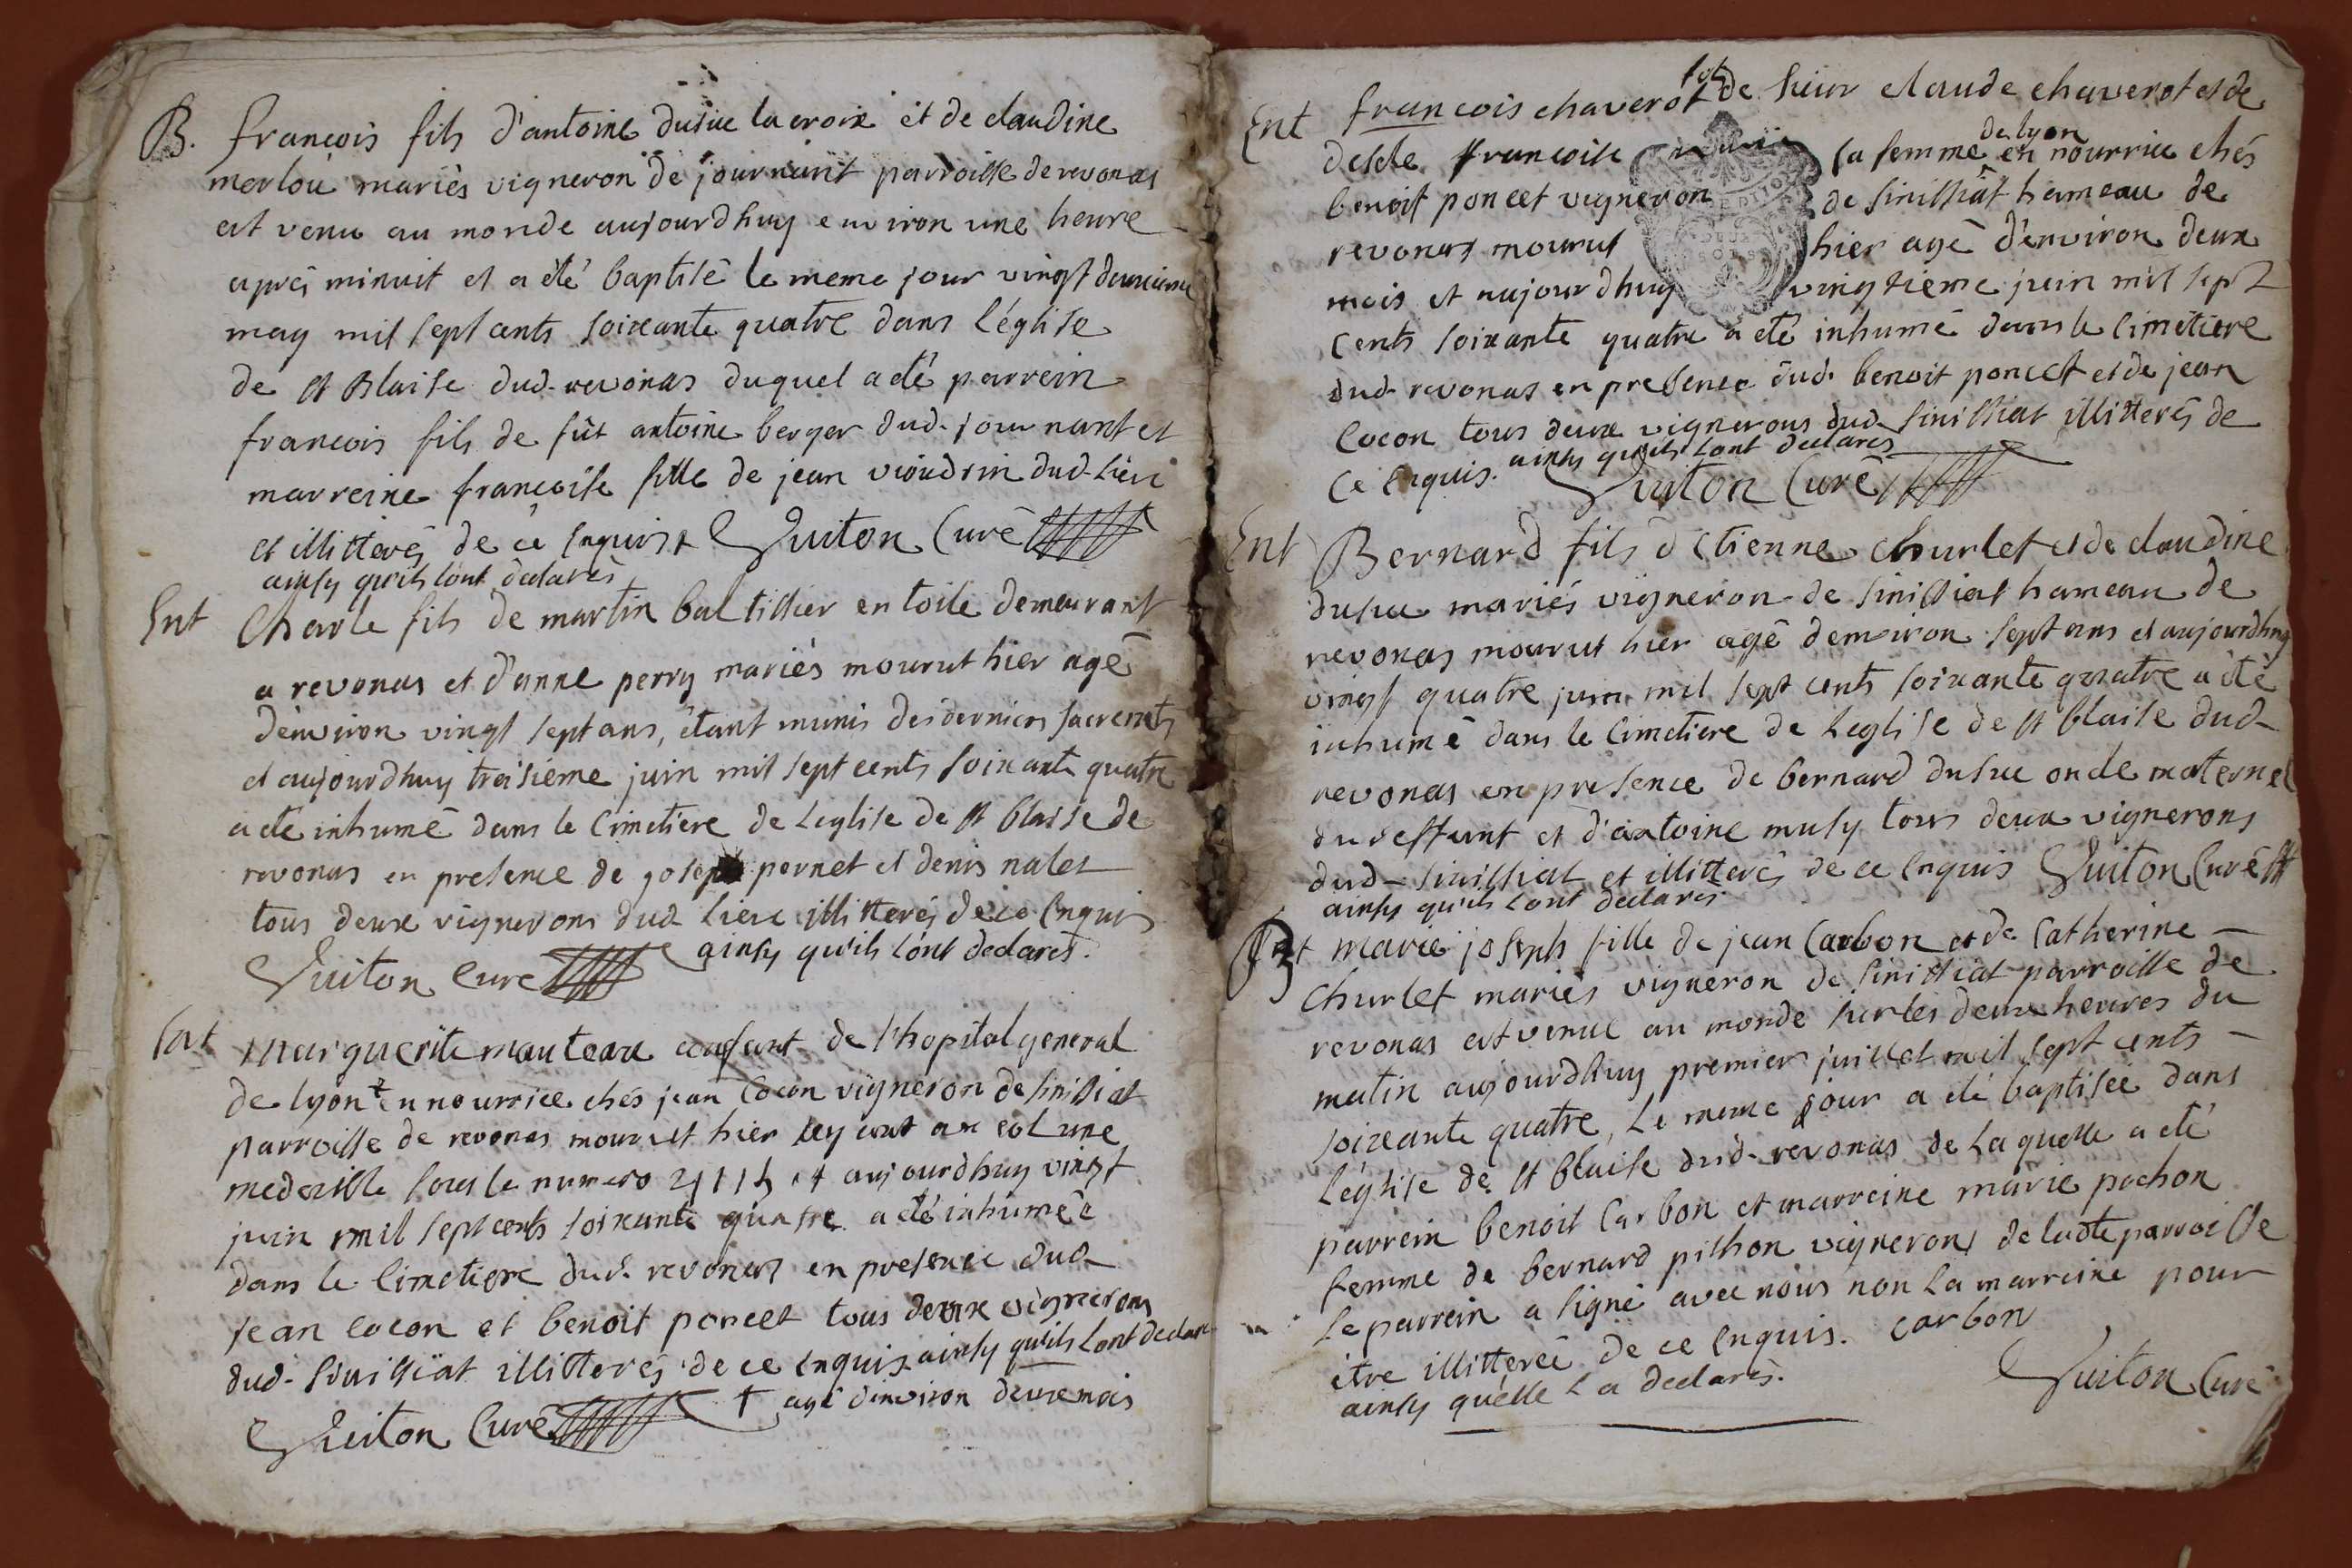 B. françois fils d'antoine dusuc la croix et de claudine
merloü mariés vigneron de journant parroisse de revonas
est venu au monde aujourdhuy environ une heure
après minuit et a été baptisé le meme jour vingt deuxieme
may mil sept cents soixante quatre dans l'église
de st Blaise dud. revonas duquel a été parrein
francois fils de fût antoine berger dud. journant et
marreine francoise fille de jean vioudrin dud. lieu
et illitterés de ce enquis Guiton Curé
ainsy qu'ils l'ont declarés
Ent Charle fils de martin bal tissier en toile demeurant
a revonas et d'anne perry mariés mourut hier agé
d'environ vingt sept ans, étant munis des derniers sacrements
et aujourdhuy troisieme juin mil sept cents soixante quatre
a été inhumé dans le Cimetiere de L'eglise de st blaise de
revonas en presence de joseph pernet et denis nalet
tous deux vignerons dud. lieu illitterés de ce Enquis
Guiton Curé ainsy qu'ils l'ont declarés.
Ent marguerite manteau enfant de l'hopital general
de lyon + en nourrice chés jean Cocon vigneron de sinissiat
parroisse de revonas mourut hier ayant au col une
medaille sous le numero et aujourdhuy vingt
juin mil sept cents soixante quatre a été inhumée
dans le Cimetiere dud. revonas en presence dud.
jean cocon et benoit poncet tous deux vignerons
dud. sinissiat illitterés de ce enquis ainsy qu'ils l'ont declarés
Guiton Curé + agé d'environ deux mois
Ent francois chaverot fils de sieur claude chaverot et de
delle francoise sa femme de lyon en nourrice chés
benoit poncet vigneron de sinissiat hameau de
revonas mourut hier agé d'environ deux
mois et aujourdhuy vingtieme juin mil sept
cents soixante quatre a été inhumé dans le cimetiere
dud. revonas en presence dud. benoit poncet et de jean
Cocon tous deux vignerons dud. sinissiat illitterés de
ce Enquis. ainsy qu'ils l'ont declarés
Guiton Curé
Ent Bernard fils d'Etienne Churlet et de claudine
dusuc mariés vigneron de sinissiat hameau de
revonas mourut hier agé d'environ sept ans et aujourdhuy
vingt quatre juin mil sept cents soixante quatre a été
inhumé dans le Cimetiere de L'eglise de st blaise dud.
revonas en presence de bernard dusuc oncle maternel
du deffunt et d'antoine musy tous deux vignerons
dud. sinissiat et illitterés de ce enquis Guiton Curé
ainsy qu'ils l'ont declarés
marie joseph fille de jean Carbon et de Catherine
Churlet mariés vigneron de sinissiat parroisse de
revonas est venue au monde sur les deux heures du
matin aujourdhuy premier juillet mil sept cents
soixante quatre, Le meme jour a été baptisée dans
L'église de st blaise dud. revonas de Laquelle a été
parrein benoit Carbon et marreine marie pochon
femme de bernard pithon vignerons de ladte parroisse
le parrein a signé avec nous non La marreine pour
être illitterée de ce enquis. carbon
ainsy qu'elle L'a declarés. Guiton Curé